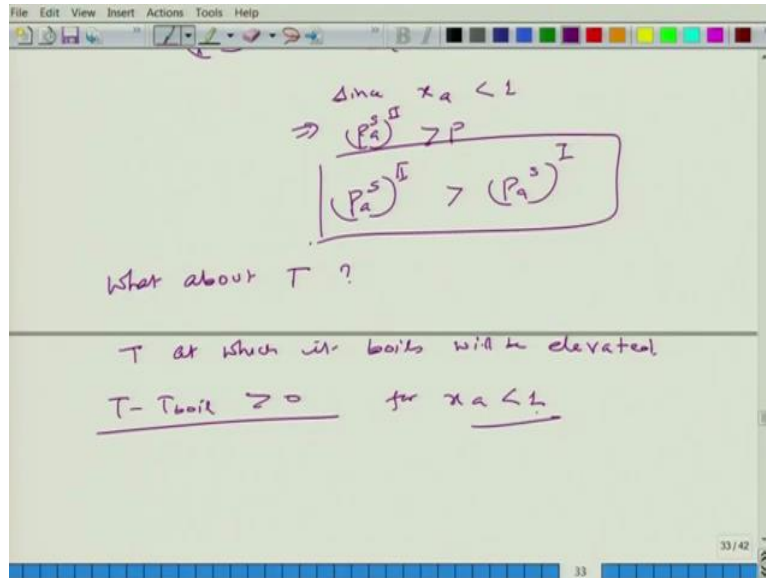 File Edit View Insert Actions Tools Help
B I
Since x_a < 1
⇒ (P_a^s)^II > P
(P_a^s)^II > (P_a^s)^I
What about T ?
T at which it boils will be elevated
T - T_boil > 0 for x_a < 1
33/42
33